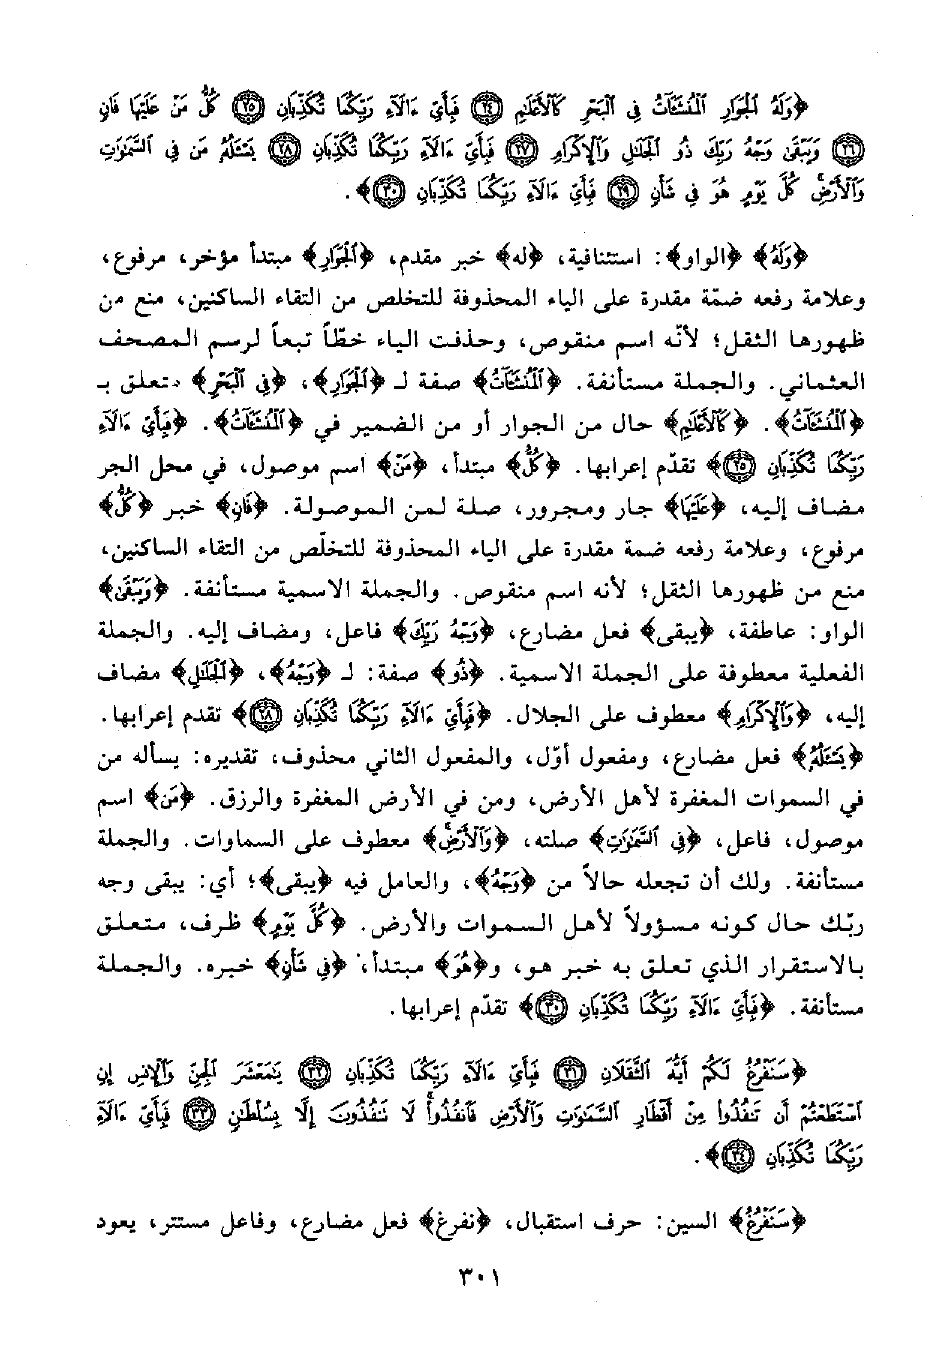 ﴿وَلَهُ ٱلْجَوَارِ ٱلْمُنشَـَٔاتُ فِى ٱلْبَحْرِ كَٱلْأَعْلَٰمِ ﴿٢٤﴾ فَبِأَىِّ ءَالَآءِ رَبِّكُمَا تُكَذِّبَانِ ﴿٢٥﴾ كُلُّ مَنْ عَلَيْهَا فَانٍ
﴿٢٦﴾ وَيَبْقَىٰ وَجْهُ رَبِّكَ ذُو ٱلْجَلَٰلِ وَٱلْإِكْرَامِ ﴿٢٧﴾ فَبِأَىِّ ءَالَآءِ رَبِّكُمَا تُكَذِّبَانِ ﴿٢٨﴾ يَسْـَٔلُهُۥ مَن فِى ٱلسَّمَٰوَٰتِ
وَٱلْأَرْضِ ۚ كُلَّ يَوْمٍ هُوَ فِى شَأْنٍ ﴿٢٩﴾ فَبِأَىِّ ءَالَآءِ رَبِّكُمَا تُكَذِّبَانِ ﴿٣٠﴾﴾.
﴿وَلَهُ﴾ ﴿الواو﴾: استئنافية، ﴿له﴾ خبر مقدم، ﴿ٱلْجَوَارِ﴾ مبتدأ مؤخر، مرفوع،
وعلامة رفعه ضمّة مقدرة على الياء المحذوفة للتخلص من التقاء الساكنين، منع من
ظهورها الثقل؛ لأنّه اسم منقوص، وحذفت الياء خطّاً تبعاً لرسم المصحف
العثماني. والجملة مستأنفة. ﴿ٱلْمُنشَـَٔاتُ﴾ صفة لـ ﴿ٱلْجَوَارِ﴾، ﴿فِى ٱلْبَحْرِ﴾ متعلق بـ
﴿ٱلْمُنشَـَٔاتُ﴾. ﴿كَٱلْأَعْلَٰمِ﴾ حال من الجوار أو من الضمير في ﴿ٱلْمُنشَـَٔاتُ﴾. ﴿فَبِأَىِّ ءَالَآءِ
رَبِّكُمَا تُكَذِّبَانِ ﴿٢٥﴾﴾ تقدّم إعرابها. ﴿كُلُّ﴾ مبتدأ، ﴿مَنْ﴾ اسم موصول، في محل الجر
مضاف إليه، ﴿عَلَيْهَا﴾ جار ومجرور، صلة لمن الموصولة. ﴿فَانٍ﴾ خبر ﴿كُلُّ﴾
مرفوع، وعلامة رفعه ضمة مقدرة على الياء المحذوفة للتخلّص من التقاء الساكنين،
منع من ظهورها الثقل؛ لأنه اسم منقوص. والجملة الاسمية مستأنفة. ﴿وَيَبْقَىٰ﴾
الواو: عاطفة، ﴿يبقى﴾ فعل مضارع، ﴿وَجْهُ رَبِّكَ﴾ فاعل، ومضاف إليه. والجملة
الفعلية معطوفة على الجملة الاسمية. ﴿ذُو﴾ صفة: لـ ﴿وَجْهُ﴾، ﴿ٱلْجَلَٰلِ﴾ مضاف
إليه، ﴿وَٱلْإِكْرَامِ﴾ معطوف على الجلال. ﴿فَبِأَىِّ ءَالَآءِ رَبِّكُمَا تُكَذِّبَانِ ﴿٢٨﴾﴾ تقدم إعرابها.
﴿يَسْـَٔلُهُۥ﴾ فعل مضارع، ومفعول أوّل، والمفعول الثاني محذوف، تقديره: يسأله من
في السموات المغفرة لأهل الأرض، ومن في الأرض المغفرة والرزق. ﴿مَن﴾ اسم
موصول، فاعل، ﴿فِى ٱلسَّمَٰوَٰتِ﴾ صلته، ﴿وَٱلْأَرْضِ ۚ﴾ معطوف على السماوات. والجملة
مستأنفة. ولك أن تجعله حالاً من ﴿وَجْهُ﴾، والعامل فيه ﴿يبقى﴾؛ أي: يبقى وجه
ربّك حال كونه مسؤولاً لأهل السموات والأرض. ﴿كُلَّ يَوْمٍ﴾ ظرف، متعلق
بالاستقرار الذي تعلق به خبر هو، و﴿هُوَ﴾ مبتدأ، ﴿فِى شَأْنٍ﴾ خبره. والجملة
مستأنفة. ﴿فَبِأَىِّ ءَالَآءِ رَبِّكُمَا تُكَذِّبَانِ ﴿٣٠﴾﴾ تقدّم إعرابها.
﴿سَنَفْرُغُ لَكُمْ أَيُّهَ ٱلثَّقَلَانِ ﴿٣١﴾ فَبِأَىِّ ءَالَآءِ رَبِّكُمَا تُكَذِّبَانِ ﴿٣٢﴾ يَٰمَعْشَرَ ٱلْجِنِّ وَٱلْإِنسِ إِنِ
ٱسْتَطَعْتُمْ أَن تَنفُذُوا۟ مِنْ أَقْطَارِ ٱلسَّمَٰوَٰتِ وَٱلْأَرْضِ فَٱنفُذُوا۟ ۚ لَا تَنفُذُونَ إِلَّا بِسُلْطَٰنٍ ﴿٣٣﴾ فَبِأَىِّ ءَالَآءِ
رَبِّكُمَا تُكَذِّبَانِ ﴿٣٤﴾﴾.
﴿سَنَفْرُغُ﴾ السين: حرف استقبال، ﴿نفرغ﴾ فعل مضارع، وفاعل مستتر، يعود
٣٠١